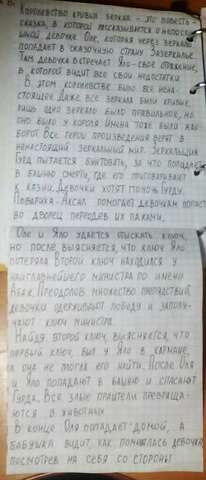 Королевство кривых зеркал - это повесть-
сказка, в которой рассказывается о непослу-
шной девочке Оле, которая через зеркало
попадает в сказочную страну Зазеркалье.
Там девочка встречает Яло - свое отражение,
в которой видит все свои недостатки
В этом королевстве было все нена-
стоящее. Даже все зеркала были кривые,
лишь одно зеркало было правильное, но
оно было у короля. Имена тоже были нао-
борот. Все герои произведения верят в
ненастоящий зеркальный мир. Зеркальщик
Гурд пытается бунтовать, за что попадает
в башню смерти, где его приговаривают
к казни. Девочки хотят помочь Гурду.
Повариха - Аксал помогает девочкам попасть
во дворец переодев их пажами.
Оле и Яло удается отыскать ключ,
но после, выясняется, что ключ Яло
потеряла. Второй ключ находился у
наиглавнейшего министра по имени
Абаж. Преодолев множество препятствий,
девочки одерживают победу и заполу-
чают ключ министра.
Найдя второй ключ, выясняется, что
первый ключ был у Яло в кармане,
а она не могла его найти. После Оля
и Яло попадают в башню и спасают
Гурда. Все злые правители превраща-
ются в животных
В конце Оля попадает домой, а
бабушка видит, как поменялась девочка,
посмотрев на себя со стороны